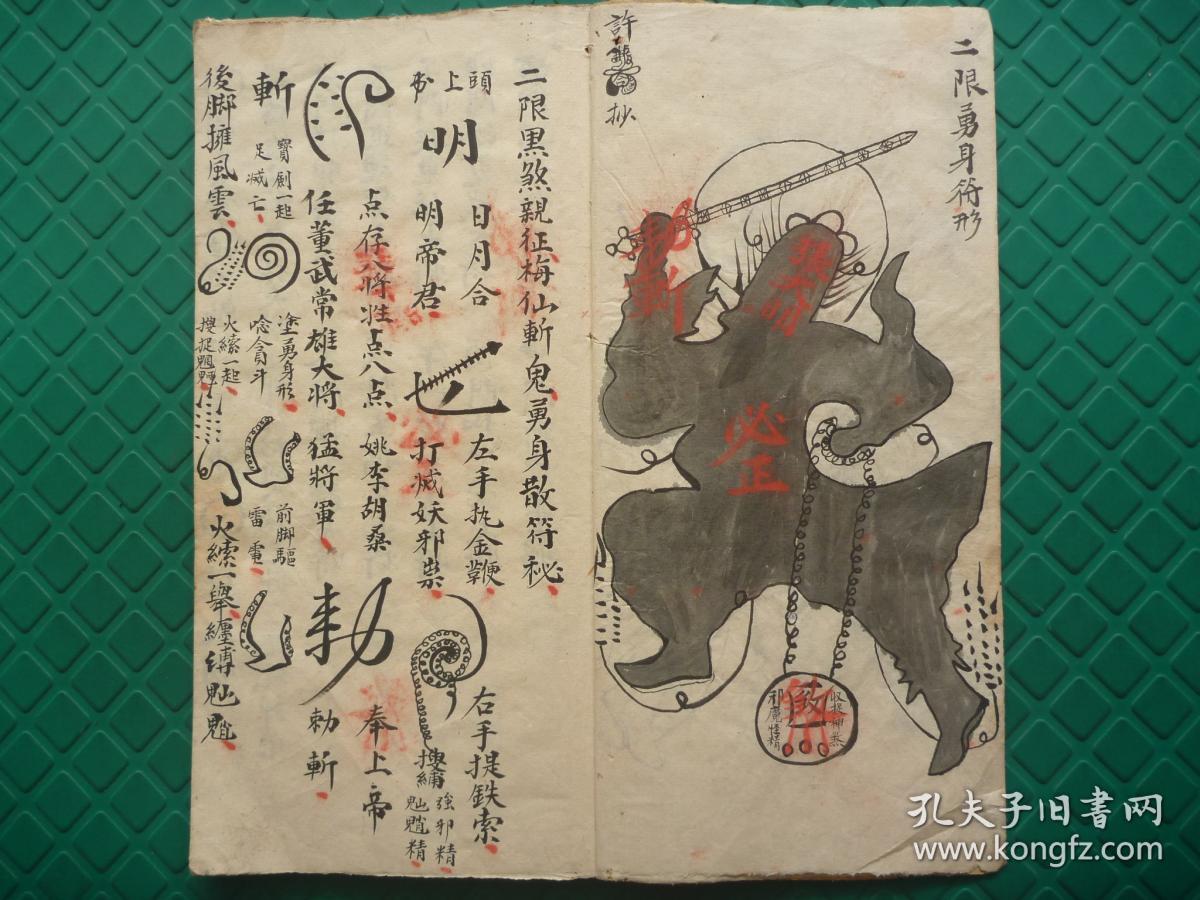 二限勇身符形
許
抄
勅斬
張
明
必正
收捉神煞
邪魔怪精
二限黑煞親征梅仙斬鬼勇身散符秘
頭上
明
日月合
明帝君
左手执金鞭
打滅妖邪祟
右手提鉄索
搜縛
強邪精
魈精
点存八將姓点八点
姚李胡桑
奉上帝
任董武常雄大将
猛將軍
勅
勅斬
斬
寶劍一起
足滅亡
塗勇身形
唸貪斗
前脚驅
雷電
後脚擁風雲
火繂一起
搜捉
火繂一舉纏縛
孔夫子旧书网
www.kongfz.com